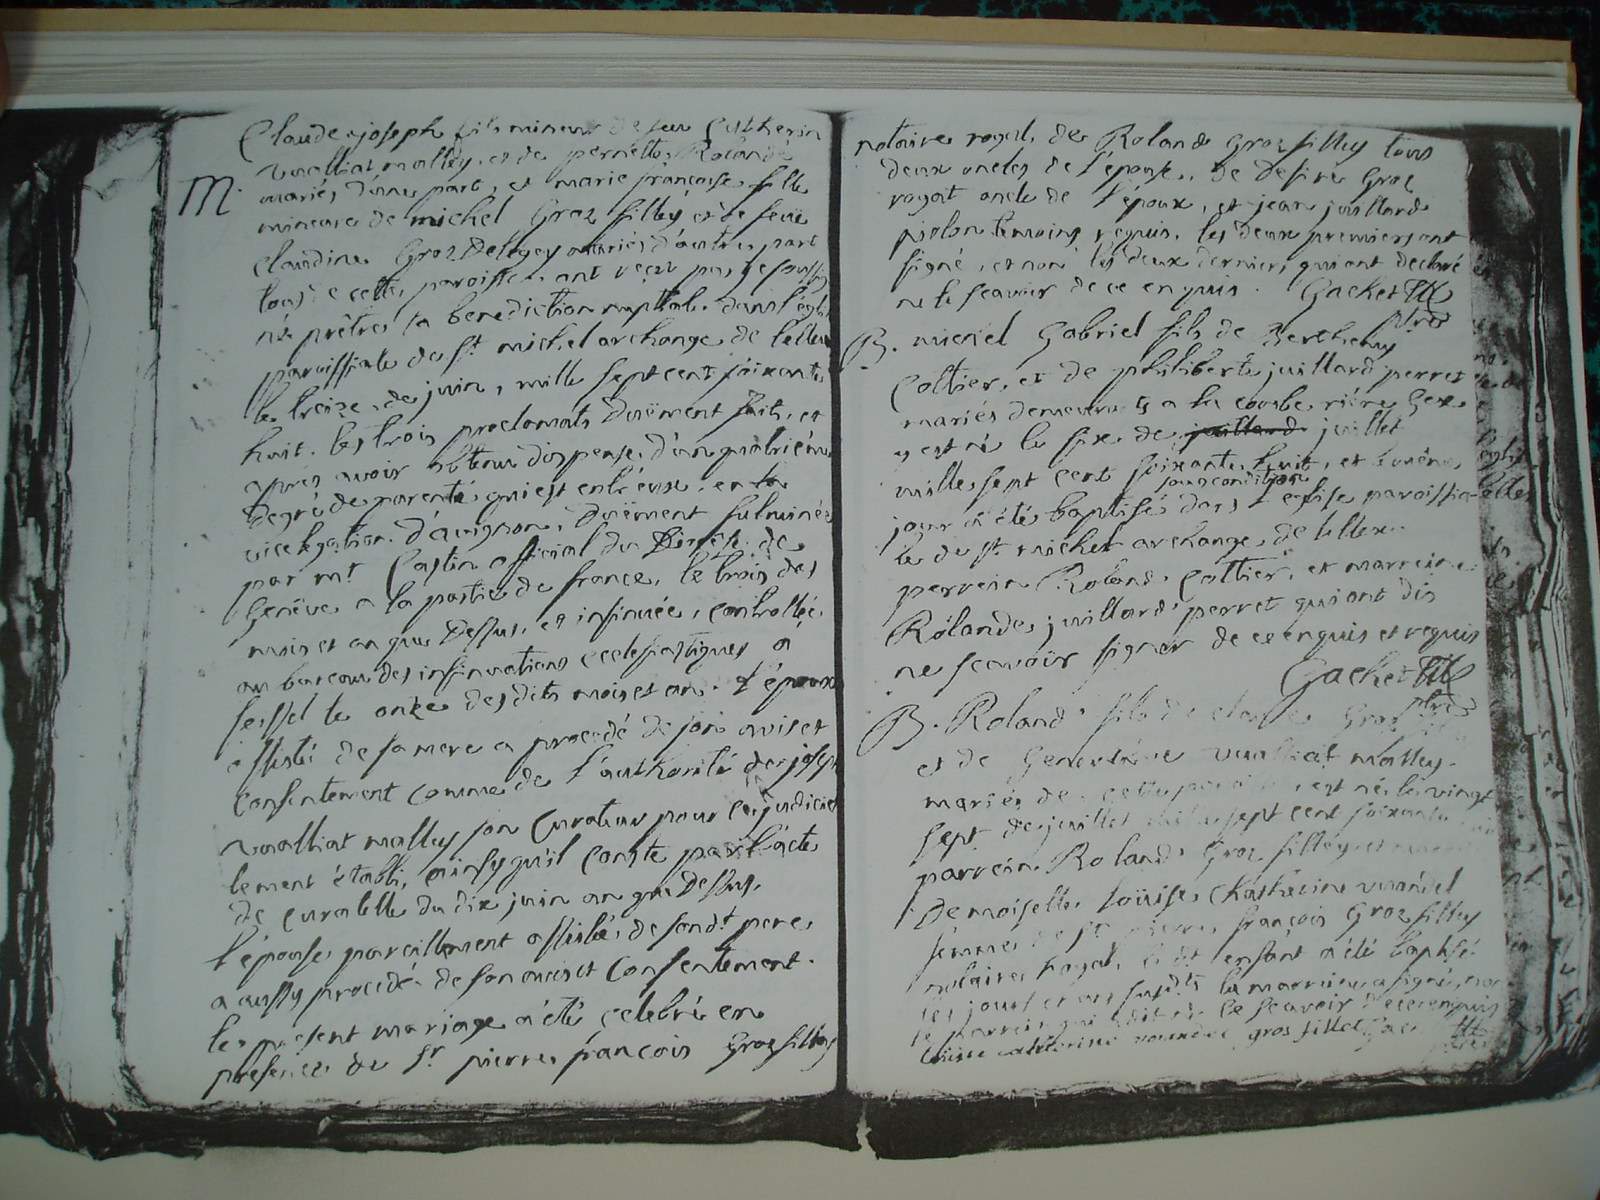 Claude joseph fils mineur de feu Catherin
vualliat malley, et de pernette Rolande
M. mariés d'une part, et marie françoise fille
mineure de michel Groz filley et de feüe
claudine Groz Delegey mariés d'autre part
tous de cette paroisse, ont reçu par je soussig
né prêtre la benediction nuptiale dans l'église
paroissiale de st michel archange de lellex
le treize de juin, mille sept cent soixante
huit. les trois proclamats duëment faits, et
apres avoir obtenu dispense d'un quatrième
degré de parenté qui est entr'eux, en la
vice legation d'avignon, duëment fulminée
par mr Castin official du Diocèse de
Genêve a la partie de france, le trois des
mois et an que Dessus, et insinuée, controllée
au bureau des insinuations ecclesiastiques a
seissel le onze desdits mois et an. L'époux
assisté de sa mere a procedé de son avis et
consentement comme de l'authorité de joseph
vualliat malley son curateur pour ce judiciel
lement établi, ainsy qu'il conste par l'acte
de curatelle du dix juin an que Dessus.
l'épouse pareillement assistée de sond. pere
a aussy procedé de son avis et consentement.
le present mariage a été celebré en
presence de sr pierre françois Groz filley
notaire royal, de Roland Groz filley tous
deux oncles de l'épouse, de desiré Groz
royat oncle de l'époux, et jean juillard
piolon temoins requis. les deux premiers ont
signé, et non les deux derniers qui ont declaré
ne le scavoir de ce enquis. Gachet
B. michel Gabriel fils de Berthemy
Coltier, et de philiberte juillard perret
mariés demeurants a la combe riére Gex
y est né le six de juillard juillet
mille sept cent soixante huit, et le même
sous condition
jour a été baptisé dans l'eglise paroissia
le de st michel archange de lellex.
perrein Roland Coltier, et marreine
Rolande juillard perret qui ont dit
ne scavoir signer de ce enquis et requis
Gachet
B. Roland fils de Groz
et de Genevieve vualliat malley
mariés de cette est né le vingt
sept de juillet mille sept cent soixante
parrein Roland Groz filley et
Demoiselle Loüise Chatherine vuandel
femme de sr pierre françois Groz filley
notaire royal, enfant a été baptisé
les jour et an susdits la marreine a signé, non
le parrein qui a dit ne le scavoir de ce enquis
Louise catherine gros fillet